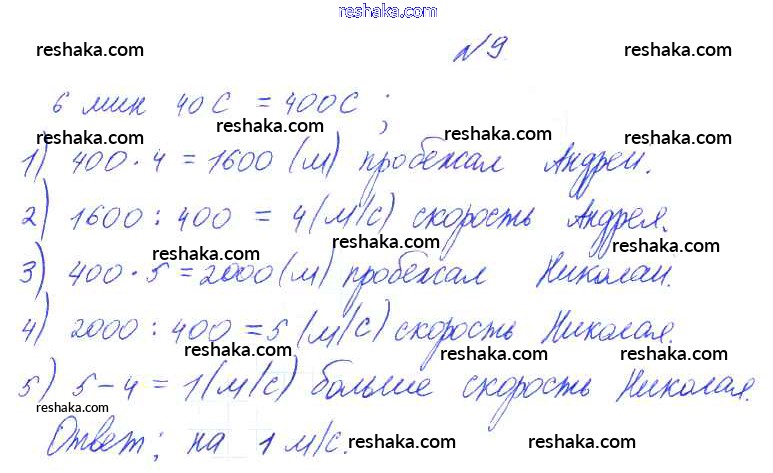 reshaka.com
reshaka.com reshaka.com №9 reshaka.com
6 мин 40 с = 400 с ;
reshaka.com reshaka.com reshaka.com
1) 400 · 4 = 1600 (м) пробежал Андрей.
reshaka.com reshaka.com reshaka.com
2) 1600 : 400 = 4 (м/с) скорость Андрея.
reshaka.com reshaka.com reshaka.com
3) 400 · 5 = 2000 (м) пробежал Николай.
reshaka.com reshaka.com reshaka.com
4) 2000 : 400 = 5 (м/с) скорость Николая.
reshaka.com reshaka.com reshaka.com
5) 5 – 4 = 1 (м/с) больше скорость Николая.
reshaka.com
Ответ: на 1 м/с.
reshaka.com reshaka.com reshaka.com